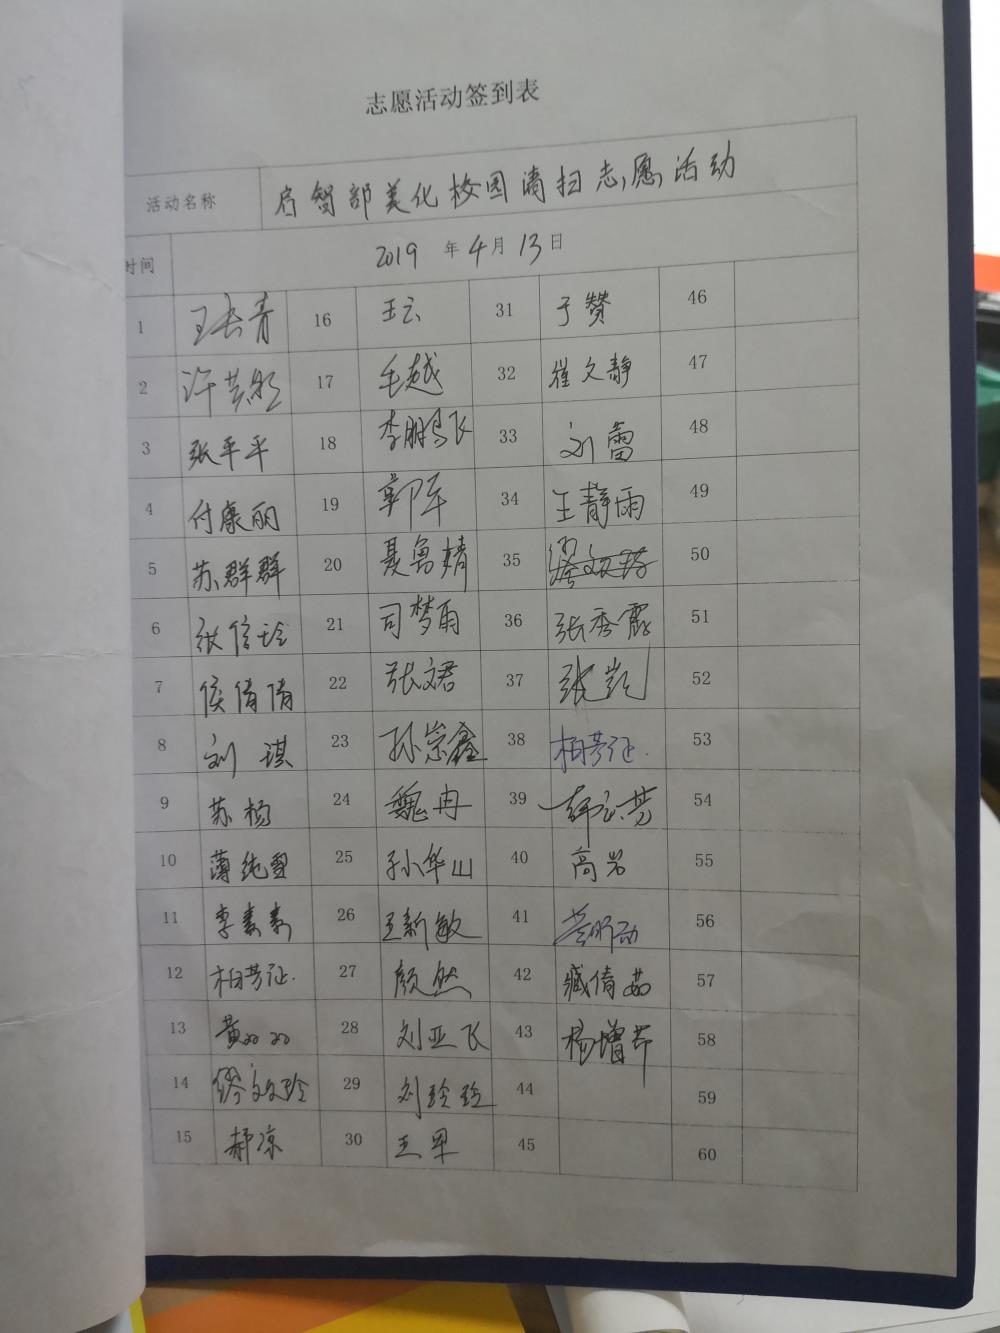 志愿活动签到表
活动名称 启智部美化校园清扫志愿活动
时间 2019 年 4 月 13 日
1 王长青 16 王云 31 于赞 46
2 许 17 毛越 32 崔文静 47
3 张平平 18 李鹏飞 33 刘雷 48
4 付康丽 19 郭军 34 王静雨 49
5 苏群群 20 聂鲁婧 35 缪文玲 50
6 张信玲 21 司梦雨 36 张秀霞 51
7 侯倩倩 22 张文君 37 张凯 52
8 刘琪 23 孙崇鑫 38 柏芳征. 53
9 苏杨 24 魏冉 39 薛立芳 54
10 薄纯雪 25 孙华山 40 高岩 55
11 李素素 26 王新敏 41 56
12 柏芳征. 27 颜然 42 臧倩茹 57
13 黄双双 28 刘亚飞 43 杨增芹 58
14 缪文玲 29 刘玲玲 44 59
15 郝凉 30 王军 45 60